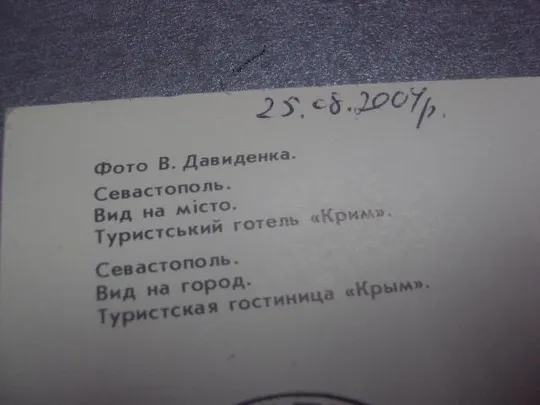 25.08.2004р.
Фото В. Давиденка.
Севастополь.
Вид на місто.
Туристський готель «Крим».
Севастополь.
Вид на город.
Туристская гостиница «Крым».